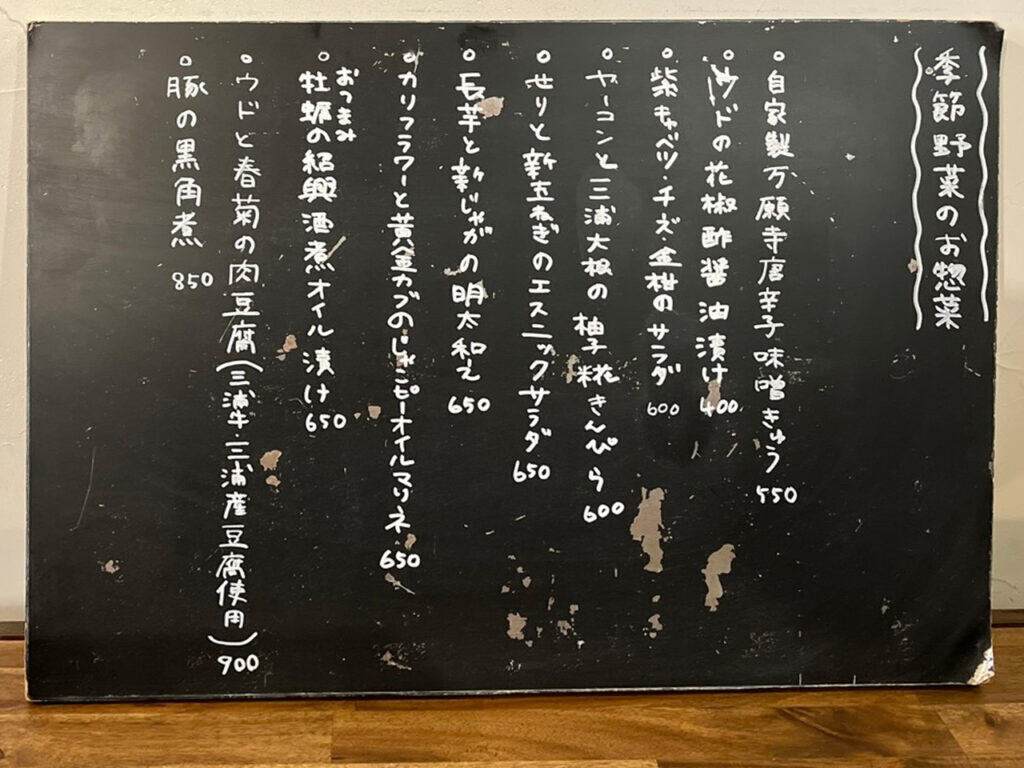 季節野菜のお惣菜
○自家製万願寺唐辛子味噌きゅう 550
○ウドの花椒酢醤油漬け 400
○紫キャベツ・チーズ・金柑のサラダ 600
○ヤーコンと三浦大根の柚子糀きんぴら 600
○せりと新玉ねぎのエスニックサラダ 650
○長芋と新じゃがの明太和え 650
○カリフラワーと黄金カブのじゃこピーオイルマリネ 650
おつまみ
牡蠣の紹興酒煮オイル漬け 650
○ウドと春菊の肉豆腐(三浦牛・三浦産豆腐使用) 900
○豚の黒角煮 850